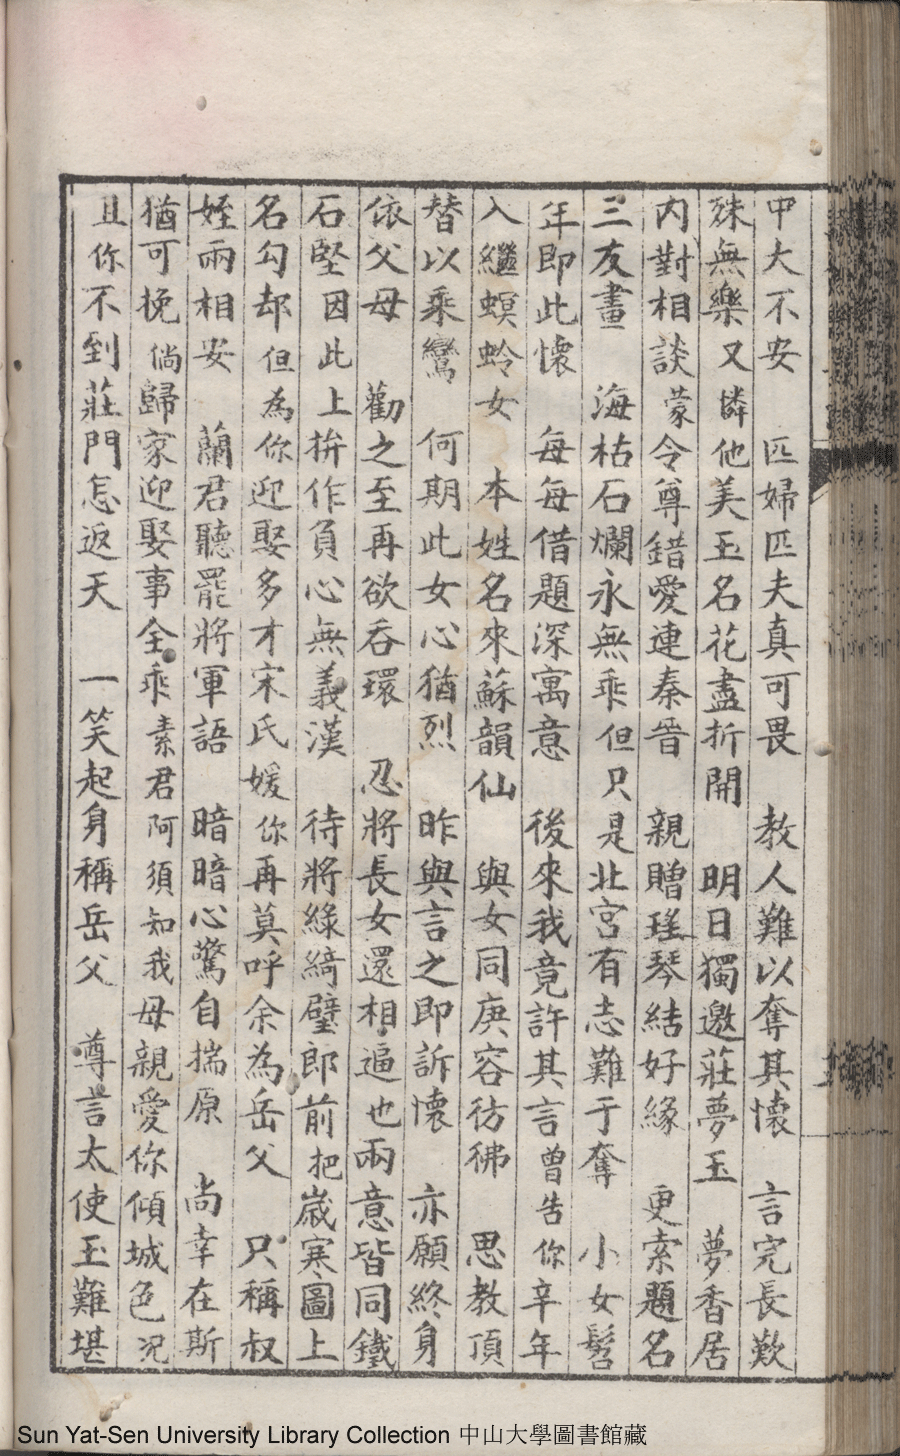 中大不安　匹婦匹夫真可畏　教人難以奪其懷　言完長歎
殊無樂又憐他美玉名花盡折開　明日獨邀莊夢玉　夢香居
內對相談蒙令尊錯愛連秦晉　親贈瑤琴結好緣　更索題名
三友畫　海枯石爛永無乖但只是北宮有志難于奪　小女髫
年即此懷　每每借題深寓意　後來我竟許其言曾告你辛年
入繼螟蛉女　本姓名來蘇韻仙　與女同庚容彷彿　思教頂
替以乘鸞　何期此女心猶烈　昨與言之即訴懷　亦願終身
依父母　勸之至再欲吞環　忍將長女還相逼也兩意皆同鐵
石堅因此上拚作負心無義漢　待將綠綺璧郎前把歲寒圖上
名勾却但為你迎娶多才宋氏媛你再莫呼余為岳父　只稱叔
姪兩相安　蘭君聽罷將軍語　暗暗心驚自揣原　尚幸在斯
猶可挽倘歸家迎娶事全乖素君阿須知我母親愛你傾城色况
且你不到莊門怎返天　一笑起身稱岳父　尊言太使玉難堪
Sun Yat-Sen University Library Collection 中山大學圖書館藏